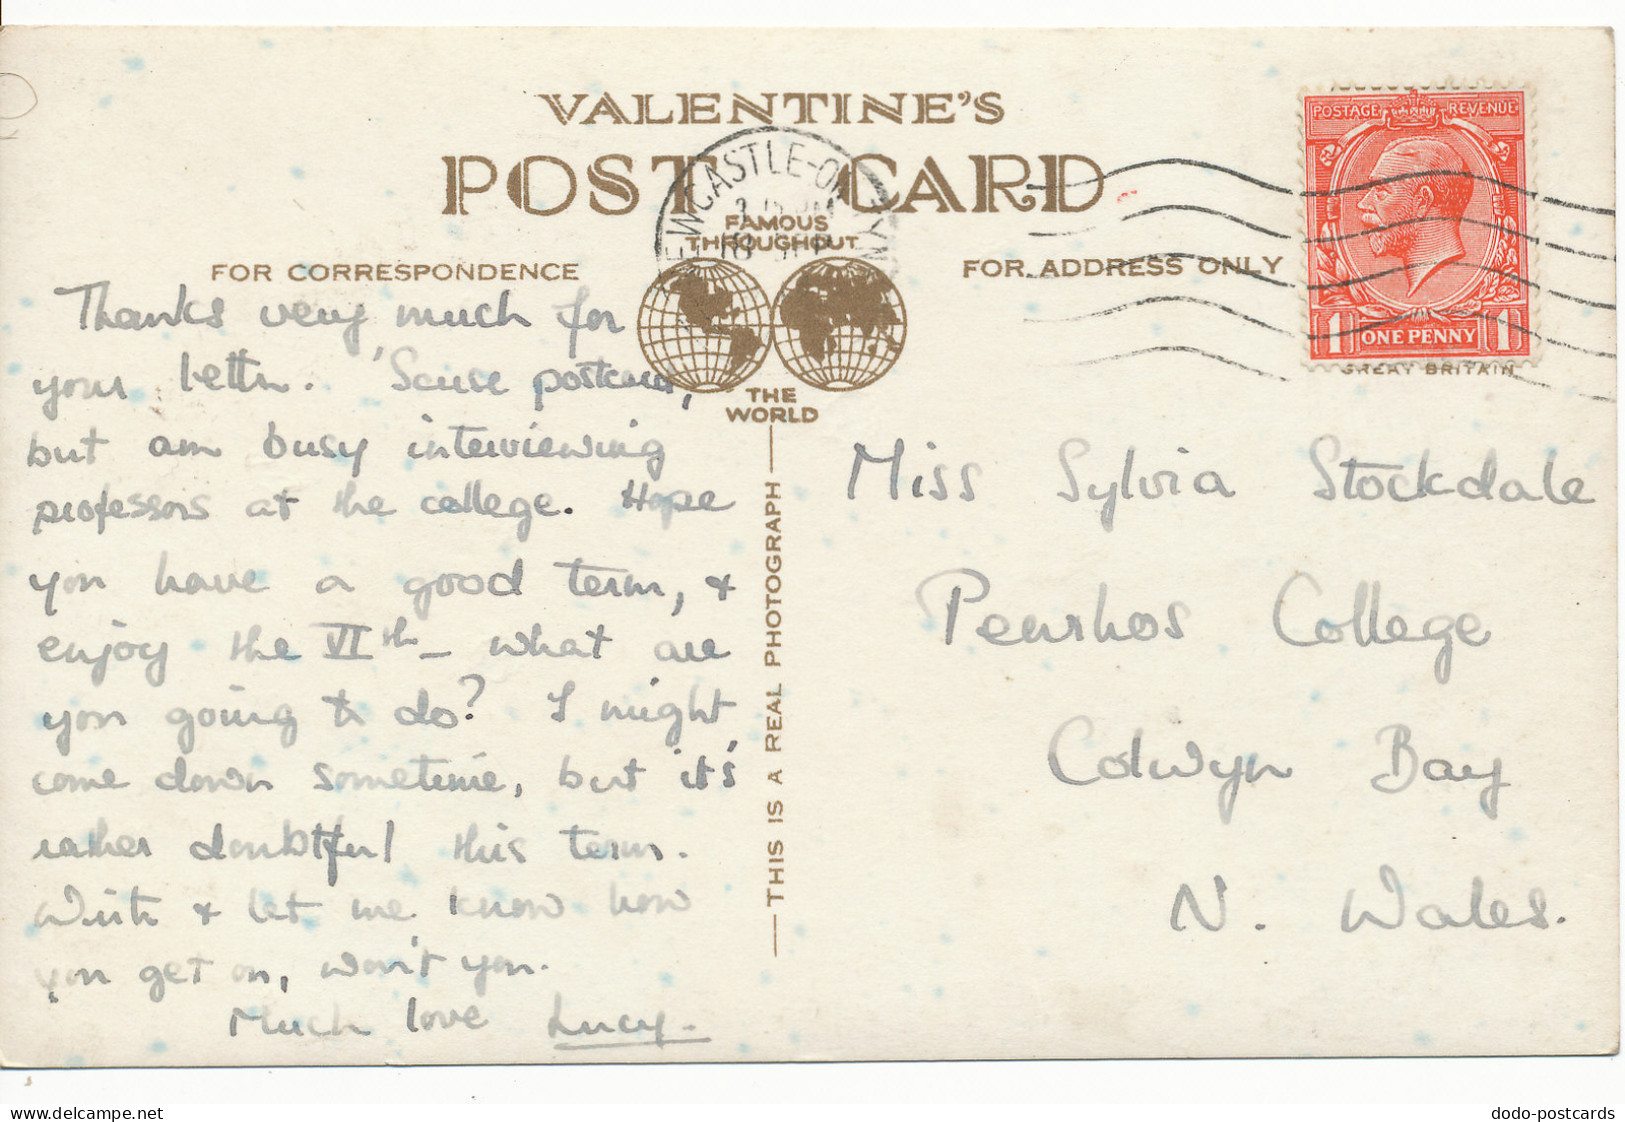 VALENTINE'S
POST CARD
NEWCASTLE-ON-TYNE
18 SEP
FAMOUS
THROUGHOUT
THE
WORLD
FOR CORRESPONDENCE
FOR ADDRESS ONLY
POSTAGE REVENUE
1 ONE PENNY 1
GREAT BRITAIN
THIS IS A REAL PHOTOGRAPH
Thanks very much for
your letter. 'Scuse postcard,
but am busy interviewing
professors at the college. Hope
you have a good term, &
enjoy the VIth – what are
you going to do? I might
come down sometime, but it's
rather doubtful this term.
Write & let me know how
you get on, won't you.
Much love Lucy.
Miss Sylvia Stockdale
Penrhos College
Colwyn Bay
N. Wales.
delcampe.net
dodo-postcards